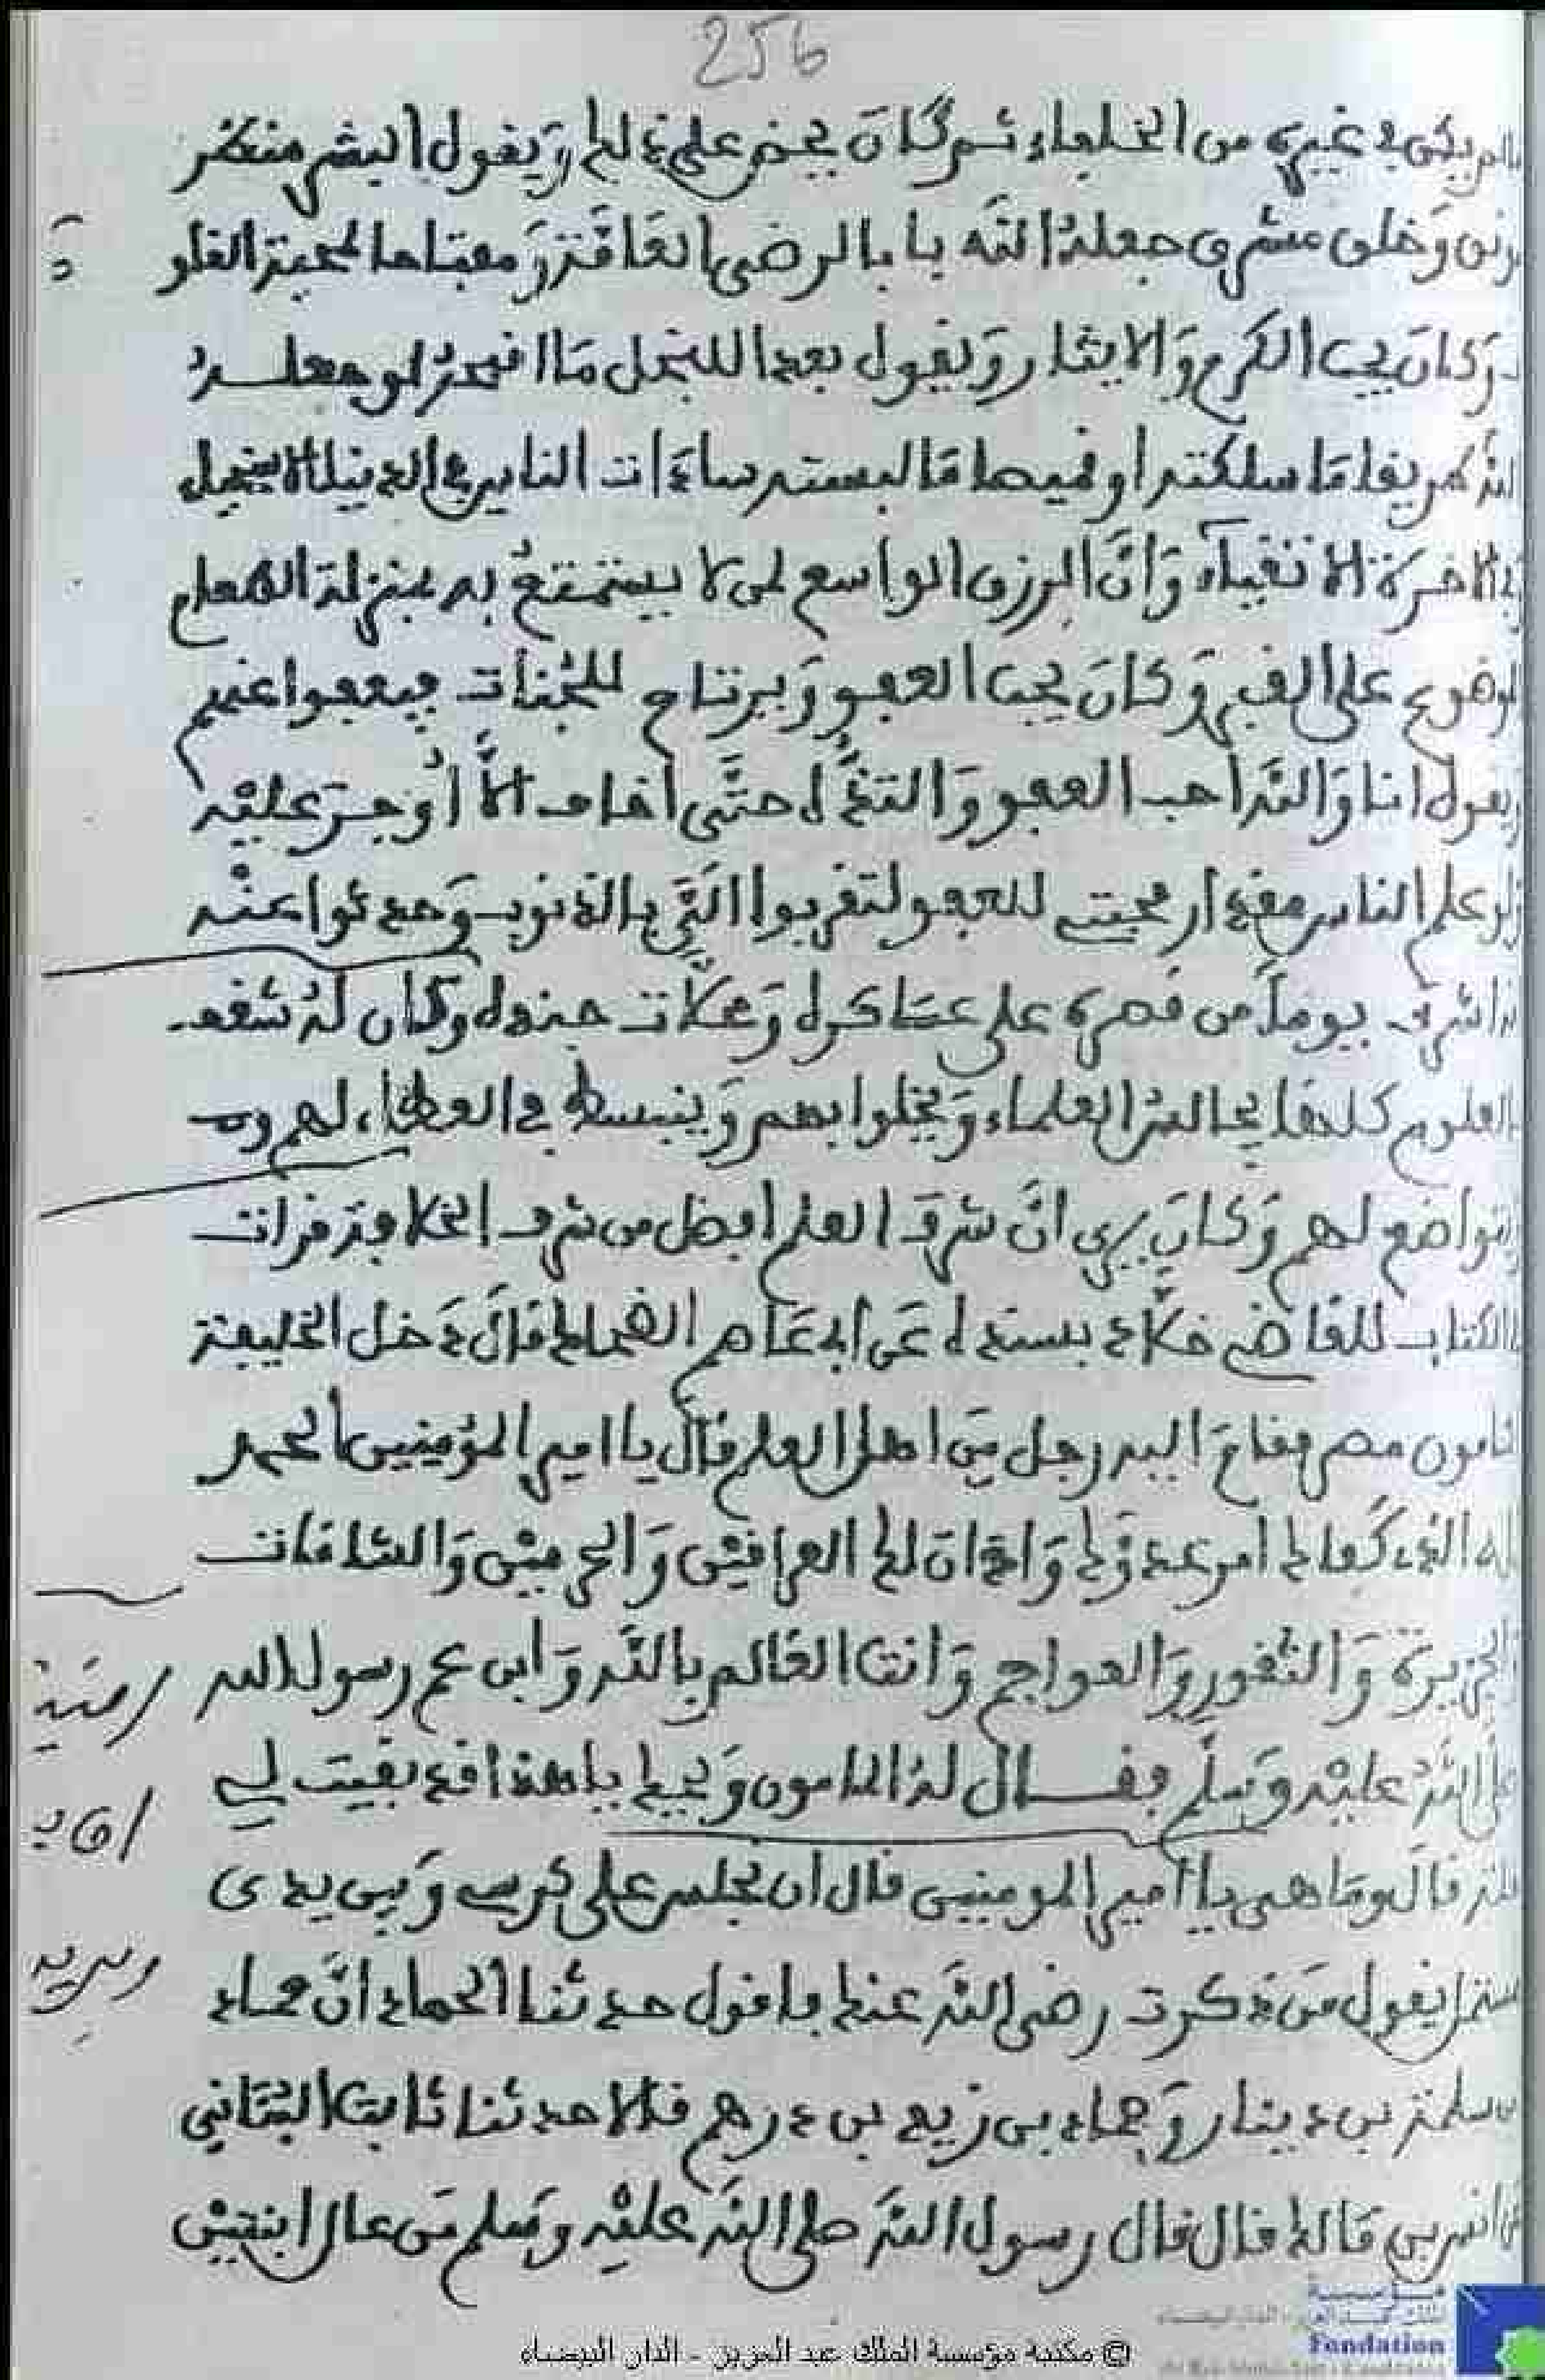 256
مالم يكن في غيره من الخلفاء ثم كان يحض على ذلك ويقول البشر منظر
مونق وخلق مشرق جعله الله بابا لرضى العامة ومفتاحا لمحبة القلو
ب
وكان يحب الكرم والايثار ويقول بعدا للبخل ما اقبحه لو جعله
الله طريقا ما سلكته او قميصا ما لبسته سادات الناس في الدنيا الاسخياء
وفي الاخرة الاتقياء وان الرزق الواسع لمن لا يستمتع به بمنزلة الطعام
الموضوع على القبر وكان يحب العفو ويرتاح للجناة فيعفوا عنهم
ويقول انا والله احب العفو والتذ له حتى اخاف الا أوجر عليه
ولو علم الناس مقدار محبتي للعفو لتقربوا الي بالذنوب وحدثوا عنه
انه اشرف يوما من قصره على عساكره وءالات جنده وكان له شغف
بالعلوم كلها يجالس العلماء ويخلوا بهم وينبسط في العطاء لهم و
يتواضع لهم وكان يرى ان شرف العلم افضل من شرف الخلافة قرات
بالكتاب للقاضي بسنده عن ابي عاصم قال دخل الخليفة
المامون مصر فقام اليه رجل من اهل العلم قال يا امير المؤمنين الحمد
لله الذي كفاك امر عدوك وادان لك العراقين والحرمين والشامات
والجزيرة والثغور والعواصم وانت العالم بالله وابن عم رسول الله
صلى الله عليه وسلم فقال له المامون ويحك يا هذا قد بقيت لي
خلة قال وما هي يا أمير المومنين قال ان نجلس على كرسي وبين يدي
مستمل يقول من ذكرت رضي الله عنك فاقول حدثنا الحمادان حماد
بن سلمة بن دينار وحماد بن زيد بن درهم قالا حدثنا ثابت البناني
عن انس بن مالك قال قال رسول الله صلى الله عليه وسلم من عال ابنتين
© مكتبة مؤسسة الملك عبد العزيز - الدار البيضاء
Fondation